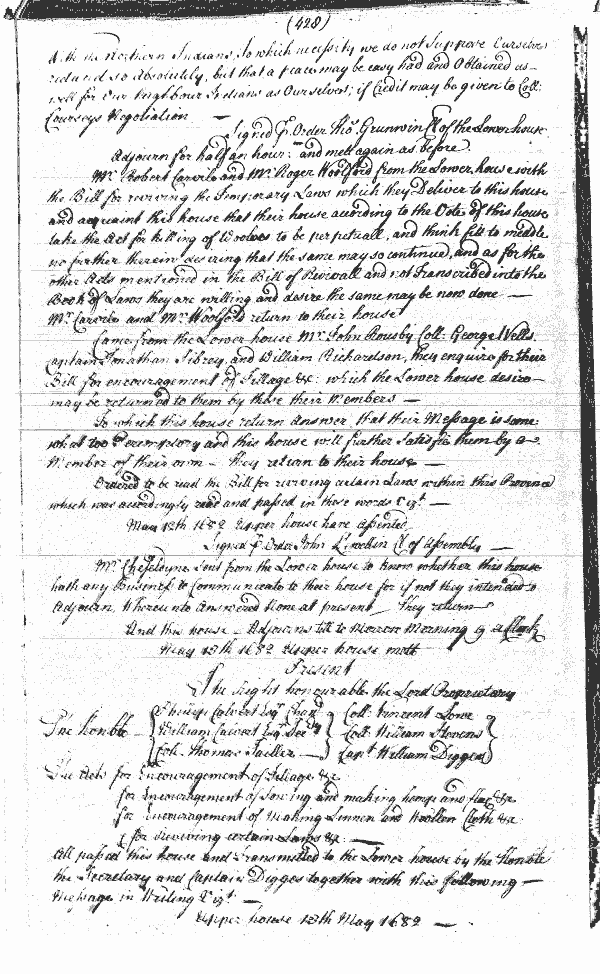 (428)
with the Northern Indians, to which necessity we do not Suppose Ourselves
reduced so Absolutely, but that a peace may be easy had and Obtained as
well for Our Neighbour Indians as Ourselves; if Credit may be given to Coll:
Courseys Negotiation —
Signed p Order Thos. Grunwin Cl of the Lower house
Adjourn for half an hour: and mett again as before
Mr. Robert Carvile and Mr. Roger Woolford from the Lower house with
the Bill for reviving the Temporary Laws which they Deliver to this house
and acquaint this house that their house according to the Vote of this house
take the Act for killing of Wolves to be perpetuall, and think fitt to meddle
no further therein desiring that the same may so continue, and as for the
other Acts mentioned in the Bill of Revivall and not Transcribed into the
Book of Laws they are willing and desire the same may be now done —
Mr. Carvile and Mr. Woolford return to their house
Came from the Lower house Mr. John Rousby Coll: George Wells
Captain Jonathan Sibrey, and William Richardson, they enquire for their
Bill for encouragement of Tillage &c: which the Lower house desire
may be returned to them by those their Members —
To which this house return answer, that their Message is some
what too Peremptory and this house will further satisfie them by a
Member of their own — They return to their house —
Ordered to be read the Bill for reviving certain Laws within this Province
which was accordingly read and passed in these words Vizt. —
May 12th 1682 Upper house have assented
Signed p Order John Llewellin Cl of Assembly —
Mr. Cheseldyne Sent from the Lower house to know whether this house
hath any Business to Communicate to their house for if not they intend to
Adjourn, Whereunto Answered None at present — They return
And this house — Adjourns till to Morrow Morning 9 a Clock
May 13th 1682 Upper house mett
Present
The Right honourable the Lord Proprietary
The Honble
Phillip Calvert Esqr. Chanr. Coll: Vincent Lowe
William Calvert Esqr. Secry. Coll: William Stevens
Coll: Thomas Tailler — Capt. William Digges
The Acts for Encouragement of Tillage &c
for Encouragement of Sowing and making hemp and flax &c
for Encouragement of Making Linnen and Woollen Cloth &c
for Reviving certain Laws &c: —
All passed this house and Transmitted to the Lower house by the Honble
the Secretary and Captain Digges together with this following —
Message in Writing Vizt. —
Upper house 13th May 1682 —